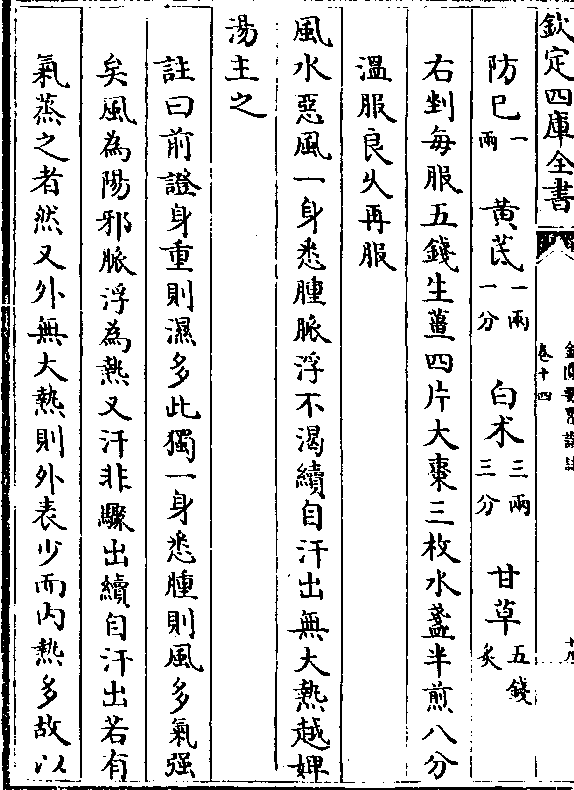 欽定四庫全書 卷十四
防已一兩 黄茋一兩一分 白术三兩三分 甘草五錢炙
右剉每服五錢生薑四片大棗三枚水盞半煎八分
溫服良乆再服
風水惡風一身悉腫脈浮不渴續自汗出無大熱越婢
湯主之
註曰前證身重則濕多此獨一身悉腫則風多氣强
矣風為陽邪脈浮為熱又汗非驟出續自汗出若有
氣蒸之者然又外無大熱則外表少而内熱多故以